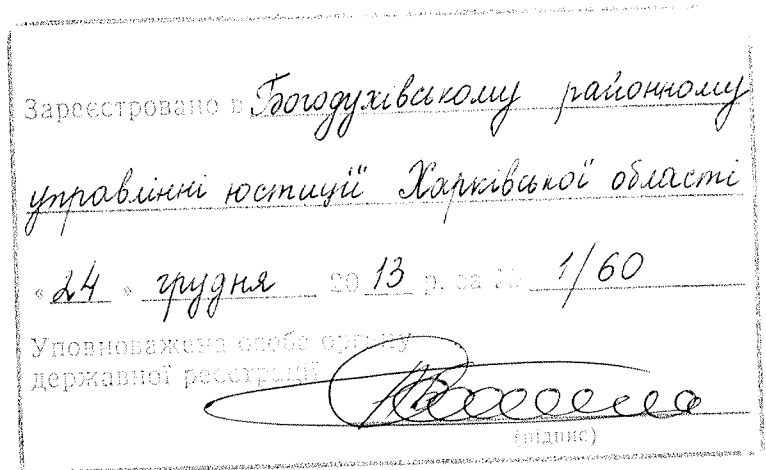 Зареєстровано в Богодухівському районному
управлінні юстиції Харківської області
«24» грудня 2013 р. за № 1/60
Уповноважена особа органу
державної реєстрації
(підпис)